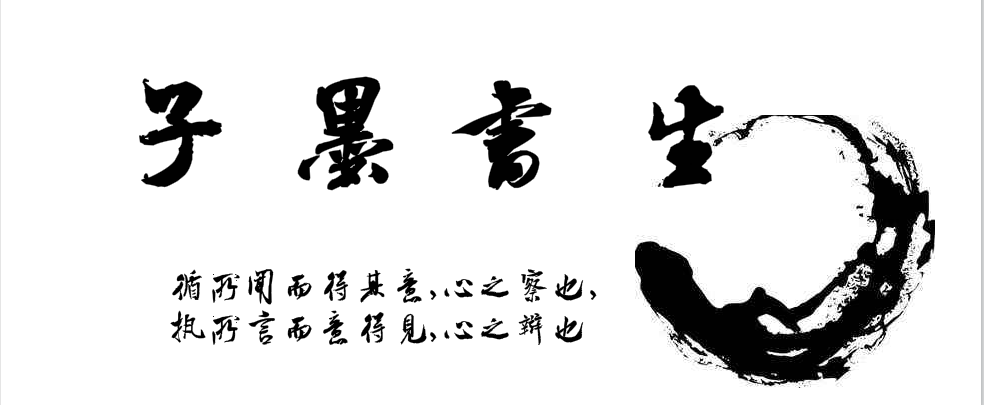 子墨書生
循所闻而得其意,心之察也,
执所言而意得見,心之辩也